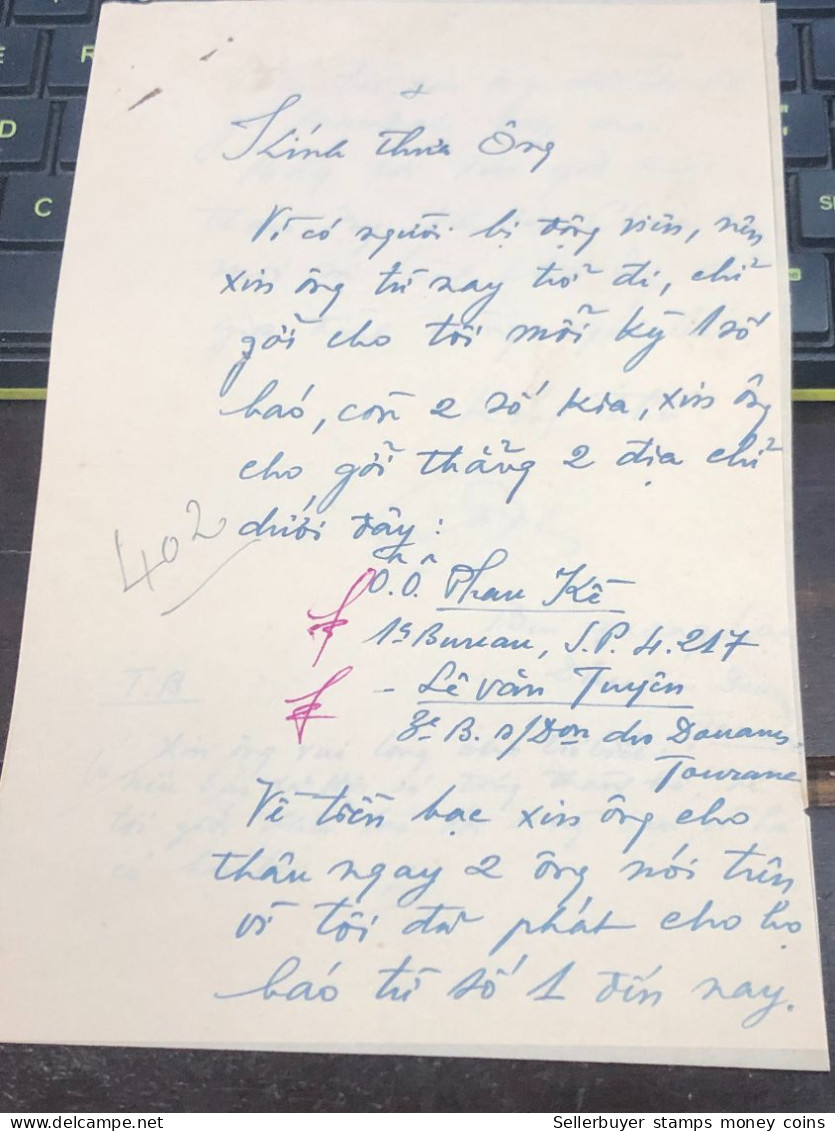 Kính thưa Ông
Vì có người bị động viên, nên
xin ông từ nay trở đi, chỉ
gởi cho tôi mỗi kỳ 1 số
báo, còn 2 số kia, xin ông
cho gởi thẳng 2 địa chỉ
dưới đây:
402
Ô.Ô. Phan Kế
1er Bureau, S.P. 4.217
- Lê văn Tuyên
3e B. s/Don des Douanes
Tourane
Về tiền bạc xin ông cho
thâu ngay 2 ông nói trên
vì tôi đã phát cho họ
báo từ số 1 đến nay.
T.B
Xin ông vui lòng
Sellerbuyer stamps money coins